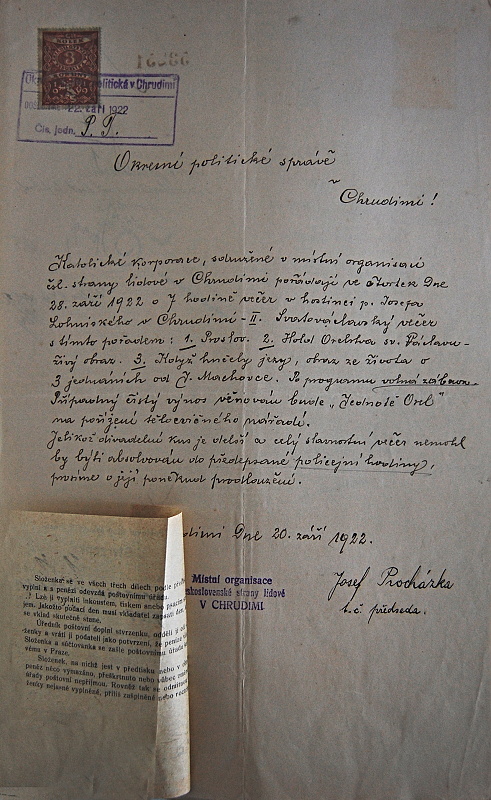 KOLEK
3
Okr politická v Chrudimi
22. září 1922
Čís. jedn. P. T.
Okresní politické správě
v
Chrudimi!
Katolické korporace, sdružené v místní organisaci
čsl. strany lidové v Chrudimi pořádají ve čtvrtek dne
28. září 1922 o 7 hodině večer v hostinci p. Josefa
v Chrudimi-II. Svatováclavský večer
s tímto pořadem: 1. Proslov. 2. Hold Orelstva sv. Václavu-
živý obraz. 3. Když hučely jezy, obraz ze života o
3 jednáních od J. Machovce. Po programu volná zábava.
Případný čistý výnos věnován bude „Jednotě Orel"
na pořízení tělocvičného nářadí.
Jelikož divadelní kus je delší a celý slavnostní večer nemohl
by býti absolvován do předepsané policejní hodiny,
prosíme o její poněkud prodloužení.
dimi Dne 20. září 1922.
Místní organisace
skoslovenské strany lidové
V CHRUDIMI
Josef Procházka
t. č. předseda.
Složenka se ve všech třech dílech podle
vyplní a s penězi odevzdá poštovnímu úřadu.
Lze ji vyplniti inkoustem, tiskem anebo psacím
jem. Jakožto pořad den musí vkladatel zapsati den,
se vklad skutečně stane.
Úředník poštovní doplní stvrzenku, oddělí ji od
ženky a vrátí ji podateli jako potvrzení, že peníze
Složenka a súčtovanka se zašle poštovnímu úřadu
vému v Praze.
Složenek, na nichž jest v předtisku nebo v
peněz něco vymazáno, přeškrtnuto nebo vůbec
úřady poštovní nepřijmou. Rovněž tak se odmítnou
ženky nejasně vyplněné, příliš zašpiněné nebo